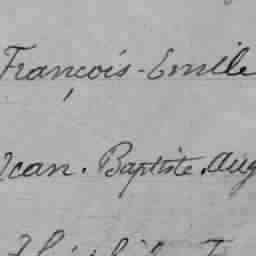 François-Emile
Jean. Baptiste. Aug